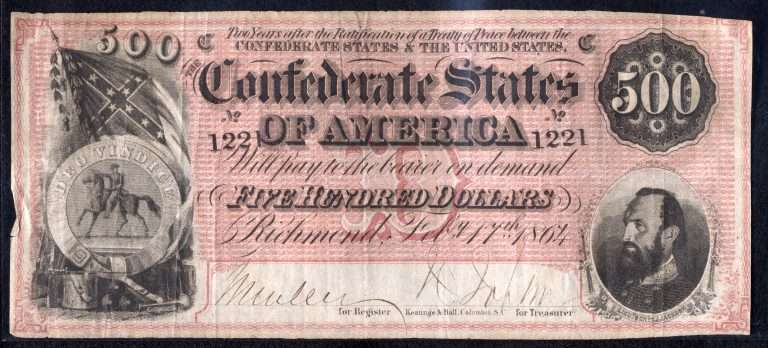 500 C Two Years after the Ratification of a Treaty of Peace between the C
CONFEDERATE STATES & THE UNITED STATES,
THE
Confederate States
500
No No
1221 OF AMERICA 1221
Will pay to the bearer on demand
DEO VINDICE
FIVE HUNDRED DOLLARS
D
Richmond, Feby. 17th 1864
for Register Keatinge & Ball, Columbia, S.C. for Treasurer